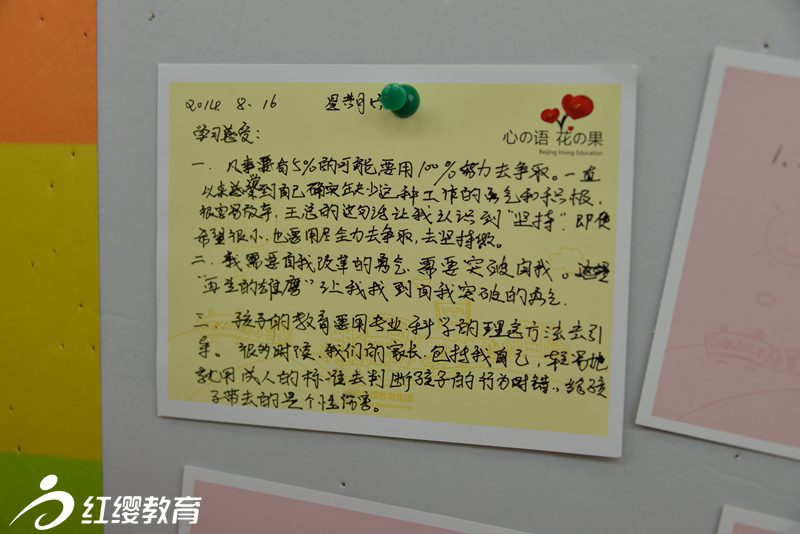 2014 8.16
心の语 花の果
Beijing Hoing Education
学习感受:
一. 凡事要有5%的可能,要用100%努力去争取。一直
以来感觉到自己确实缺少这种工作的勇气和积极,
很容易放弃,王总的这句话让我认识到"坚持".即使
希望很小.也要用尽全力去争取,去坚持做。
二.我需要自我改革的勇气 需要突破自我。这里
"再生的雄鹰"让我找到自我突破的勇气.
三. 孩子的教育要用专业.科学的理念方法去引
导。很多时候.我们的家长.包括我自己,轻易地
就用成人的标准去判断孩子的行为对错.给孩
子带去的是个性伤害。
教育集团
1.
红缨教育